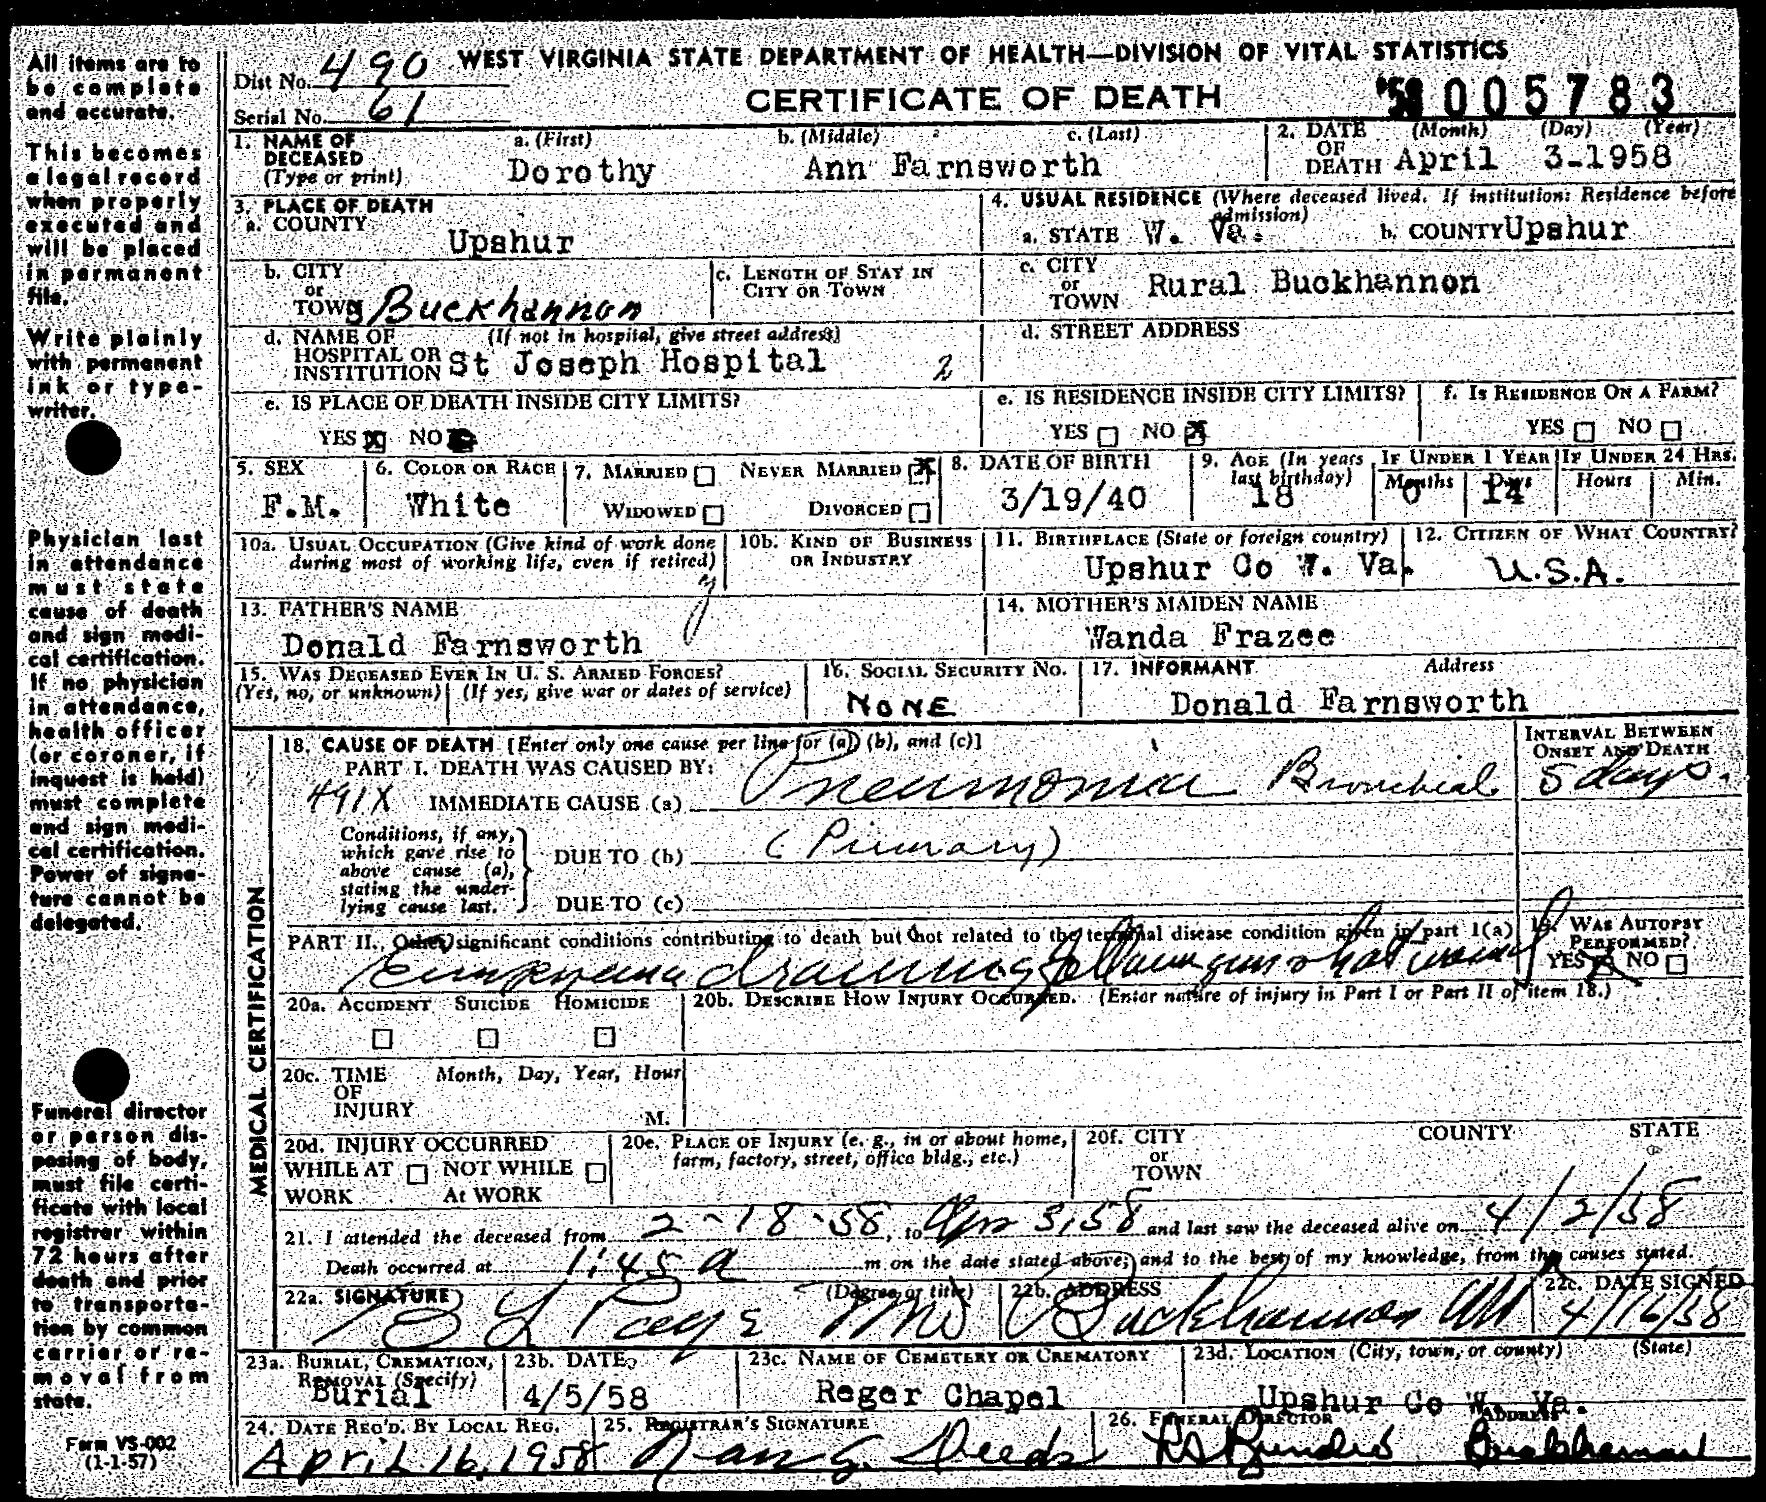 All items are to be complete and accurate.
This becomes a legal record when properly executed and will be placed in permanent file.
Write plainly with permanent ink or typewriter.
Physician last in attendance must state cause of death and sign medical certification. If no physician in attendance, health officer (or coroner, if inquest is held) must complete and sign medical certification. Power of signature cannot be delegated.
Funeral director or person disposing of body, must file certificate with local registrar within 72 hours after death and prior to transportation by common carrier or removal from state.
Form VS-002
(1-1-57)
Dist No. 490 WEST VIRGINIA STATE DEPARTMENT OF HEALTH—DIVISION OF VITAL STATISTICS
Serial No. 61 CERTIFICATE OF DEATH '58 005783
1. NAME OF DECEASED (Type or print) a. (First) b. (Middle) c. (Last) 2. DATE OF DEATH (Month) (Day) (Year)
Dorothy Ann Farnsworth April 3-1958
3. PLACE OF DEATH 4. USUAL RESIDENCE (Where deceased lived. If institution: Residence before admission)
a. COUNTY Upshur a. STATE W. Va. b. COUNTY Upshur
b. CITY or TOWN Buckhannon c. LENGTH OF STAY IN CITY OR TOWN c. CITY or TOWN Rural Buckhannon
d. NAME OF HOSPITAL OR INSTITUTION (If not in hospital, give street address) St Joseph Hospital 2 d. STREET ADDRESS
e. IS PLACE OF DEATH INSIDE CITY LIMITS? e. IS RESIDENCE INSIDE CITY LIMITS? f. IS RESIDENCE ON A FARM?
YES X NO YES NO X YES NO
5. SEX 6. COLOR OR RACE 7. MARRIED NEVER MARRIED X 8. DATE OF BIRTH 9. AGE (In years last birthday) IF UNDER 1 YEAR IF UNDER 24 HRS.
Months Days Hours Min.
F.M. White WIDOWED DIVORCED 3/19/40 18 0 14
10a. USUAL OCCUPATION (Give kind of work done during most of working life, even if retired) 10b. KIND OF BUSINESS OR INDUSTRY 11. BIRTHPLACE (State or foreign country) 12. CITIZEN OF WHAT COUNTRY?
Upshur Co W. Va. U.S.A.
13. FATHER'S NAME 14. MOTHER'S MAIDEN NAME
Donald Farnsworth Wanda Frazee
15. WAS DECEASED EVER IN U. S. ARMED FORCES? 16. SOCIAL SECURITY NO. 17. INFORMANT Address
(Yes, no, or unknown) (If yes, give war or dates of service) NONE Donald Farnsworth
MEDICAL CERTIFICATION
18. CAUSE OF DEATH [Enter only one cause per line for (a), (b), and (c)] INTERVAL BETWEEN ONSET AND DEATH
PART I. DEATH WAS CAUSED BY:
491X IMMEDIATE CAUSE (a) Pneumonia Bronchial 5 days.
Conditions, if any, which gave rise to above cause (a), stating the underlying cause last.
DUE TO (b) (Primary)
DUE TO (c)
PART II. Other significant conditions contributing to death but not related to the terminal disease condition given in part 1(a) 19. WAS AUTOPSY PERFORMED?
Empyema draining following gunshot wound YES X NO
20a. ACCIDENT SUICIDE HOMICIDE 20b. DESCRIBE HOW INJURY OCCURRED. (Enter nature of injury in Part I or Part II of item 18.)
20c. TIME OF INJURY Month, Day, Year, Hour M.
20d. INJURY OCCURRED WHILE AT WORK NOT WHILE At WORK 20e. PLACE OF INJURY (e. g., in or about home, farm, factory, street, office bldg., etc.) 20f. CITY or TOWN COUNTY STATE
21. I attended the deceased from 2-18-58, to Apr 3, 58 and last saw the deceased alive on 4/2/58
Death occurred at 1:45 a m on the date stated above; and to the best of my knowledge, from the causes stated.
22a. SIGNATURE (Degree or title) 22b. ADDRESS 22c. DATE SIGNED
MD Buckhannon 4/16/58
23a. BURIAL, CREMATION, REMOVAL (Specify) 23b. DATE 23c. NAME OF CEMETERY OR CREMATORY 23d. LOCATION (City, town, or county) (State)
Burial 4/5/58 Reger Chapel Upshur Co W. Va.
24. DATE REC'D. BY LOCAL REG. 25. REGISTRAR'S SIGNATURE 26. FUNERAL DIRECTOR ADDRESS
April 16, 1958 Buckhannon